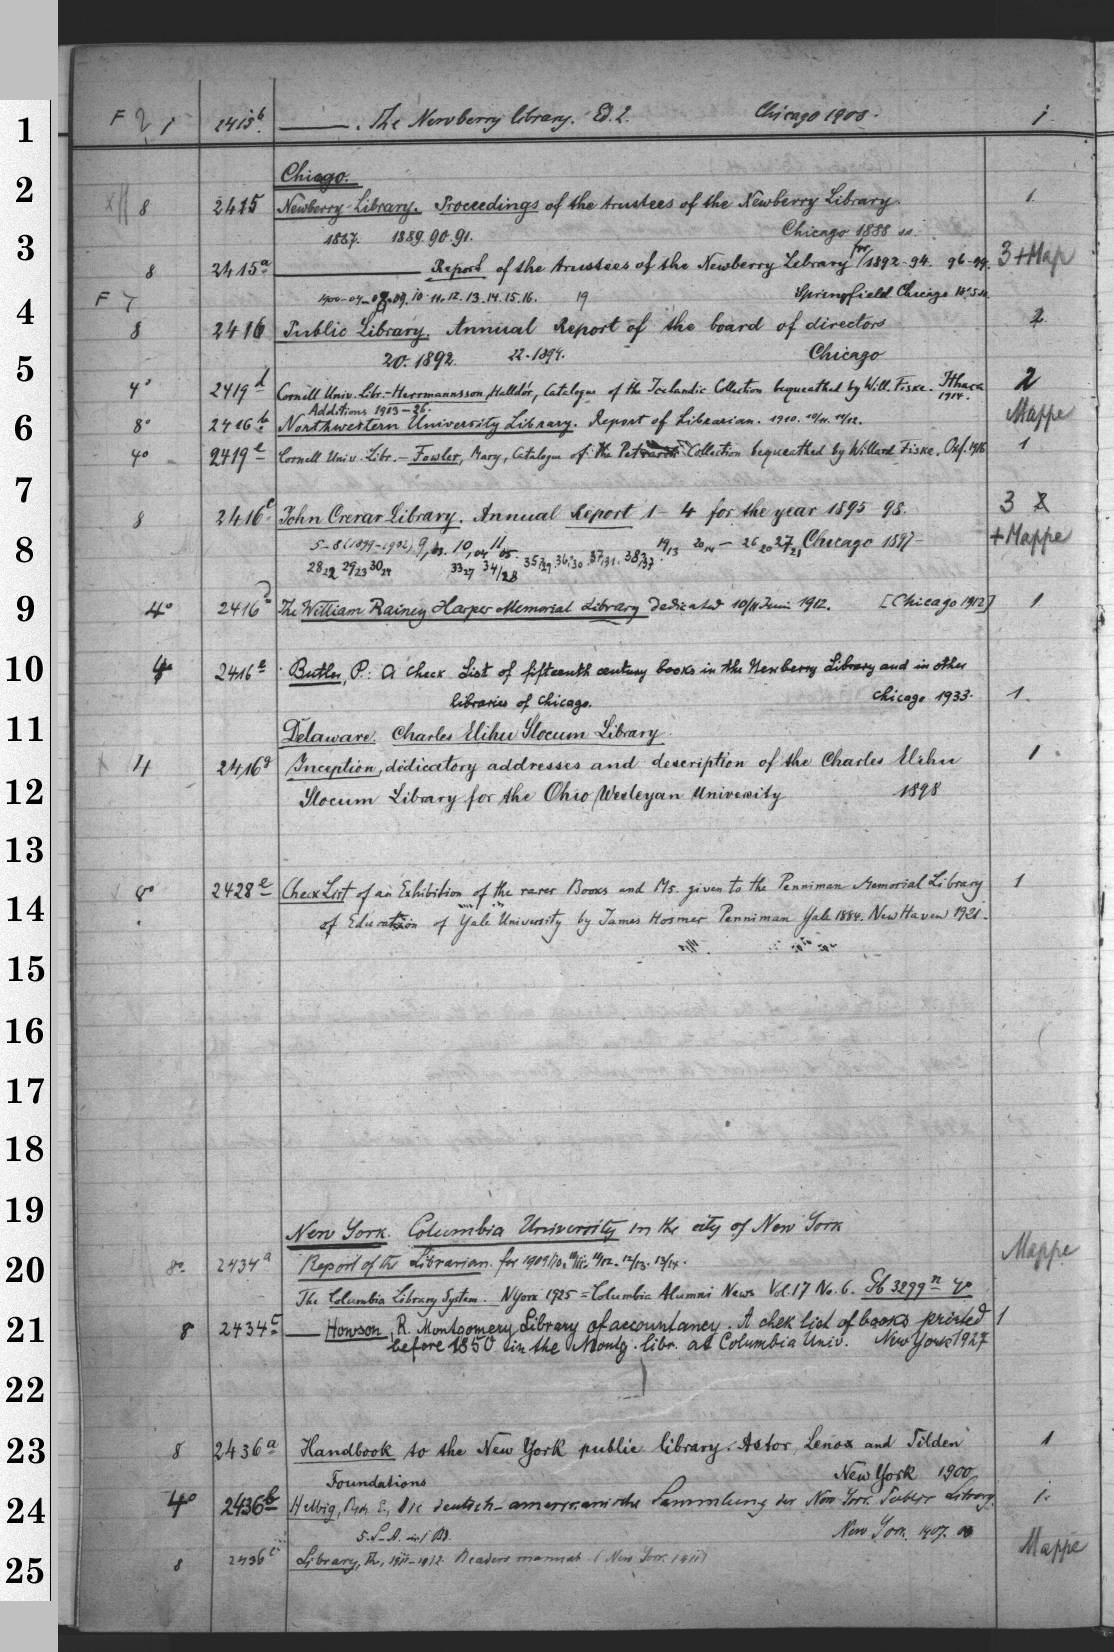 1 F 2 1 2415b ———. The Newberry library. Ed. 2. Chicago 1908. 1
2 Chicago.
8 2415 Newberry Library. Proceedings of the trustees of the Newberry Library. 1
1887. 1889. 90. 91. Chicago 1888 ss.
3 8 2415a ——— Report of the trustees of the Newberry Library for 1892-94. 96-99. 3+Map
F 1900-07-08.09. 10. 11. 12. 13. 14. 15. 16. 19 Springfield Chicago
4 8 2416 Public Library. Annual Report of the board of directors 2
20. 1892. 22. 1894. Chicago
5 4° 2419d Cornell Univ. Libr. - Herrmannsson, Halldór, Catalogue of the Icelandic Collection bequeathed by Will. Fiske. Ithaca 1914. 2
Additions 1913-26.
6 8° 2416b Northwestern University Library. Report of Librarian. 1910. 10/11. 11/12. Mappe
4° 2419e Cornell Univ. Libr. - Fowler, Mary, Catalogue of the Petrarch Collection bequeathed by Willard Fiske. Oxf. 1916 1
7 8 2416c John Crerar Library. Annual Report 1-4 for the year 1895 98. 3 2
8 5-8 (1899-1902), 9, 03. 10, 04 11 05. 19/13 20 14 - 26 20 27 21 Chicago 1897 +Mappe
28 22 29 23 30 24 33 27 34/28 35/29. 36/30. 37/31. 38/37
9 4° 2416d The William Rainey Harper Memorial Library dedicated 10/11 Juni 1912. [Chicago 1912] 1
10 2416e Butler, P.: A Check List of fifteenth century books in the Newberry Library and in other
libraries of Chicago. Chicago 1933. 1.
11 Delaware. Charles Elihu Slocum Library.
4 2416g Inception, dedicatory addresses and description of the Charles Elihu 1
12 Slocum Library for the Ohio Wesleyan University 1898
13
14 8° 2428e Check List of an Exhibition of the rarer Books and Ms. given to the Penniman Memorial Library 1
of Education of Yale University by James Hosmer Penniman Yale 1884. New Haven 1921.
15
16
17
18
19
New York. Columbia University in the city of New York
20 8° 2434a Report of the Librarian. for 1909/10. 10/11. 11/12. 12/13. 13/14. Mappe
The Columbia Library System. NYork 1925 = Columbia Alumni News Vol. 17 No. 6. Sb 3299n 4°
21 8 2434c ——— Howson, R. Montgomery Library of accountancy. A chek list of books printed 1
before 1850 in the Montg. libr. at Columbia Univ. New York 1927
22
23 8 2436a Handbook to the New York public library. Astor, Lenox and Tilden 1
Foundations New York 1900
24 4° 2436b Helbig, Rich. E., Die deutsch-amerikanische Sammlung der New York Public Library. 1.
5. S-A. in 1 Bd. New York. 1907.
25 8 2436c Library, Th., 1911-1912. Readers manual (New York 1911) Mappe